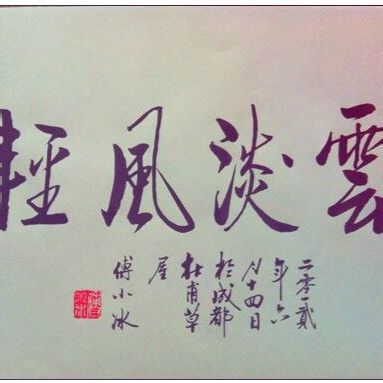 雲淡風輕
二零一貳
年六
月十四日
於成都
杜甫草
屋
傅小冰